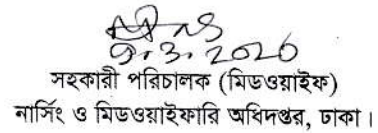 9.3.2020
সহকারী পরিচালক (মিডওয়াইফ)
নার্সিং ও মিডওয়াইফারি অধিদপ্তর, ঢাকা।